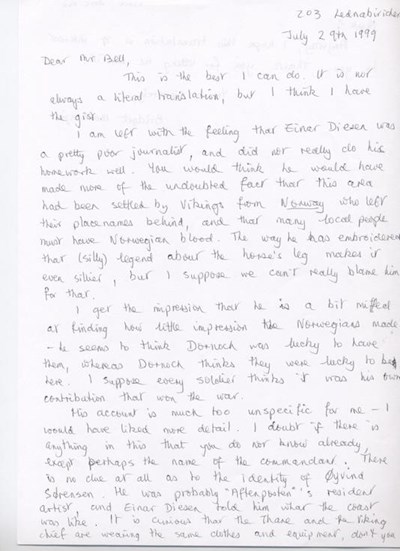 203 Lednabirichen
July 29th 1999
Dear Mr. Bell,
This is the best I can do. It is not
always a literal translation, but I think I have
the gist.
I am left with the feeling that Einar Diesen was
a pretty poor journalist, and did not really do his
homework well. You would think he would have
made more of the undoubted fact that this area
had been settled by Vikings from Norway who left
their placenames behind, and that many local people
must have Norwegian blood. The way he has embroidered
that (silly) legend about the horse's leg makes it
even sillier, but I suppose we can't really blame him
for that.
I get the impression that he is a bit miffed
at finding how little impression the Norwegians made
- he seems to think Dornoch was lucky to have
them, whereas Dornoch thinks they were lucky to be
here. I suppose every soldier thinks it was his own
contribution that won the war.
His account is much too unspecific for me - I
would have liked more detail. I doubt if there is
anything in this that you do not know already,
except perhaps the name of the commandant. There
is no clue at all as to the identity of Øyvind
Sørensen. He was probably "Aftenposten"'s resident
artist, and Einar Diesen told him what the coast
was like. It is curious that the Thane and the Viking
chief are wearing the same clothes and equipment, don't you